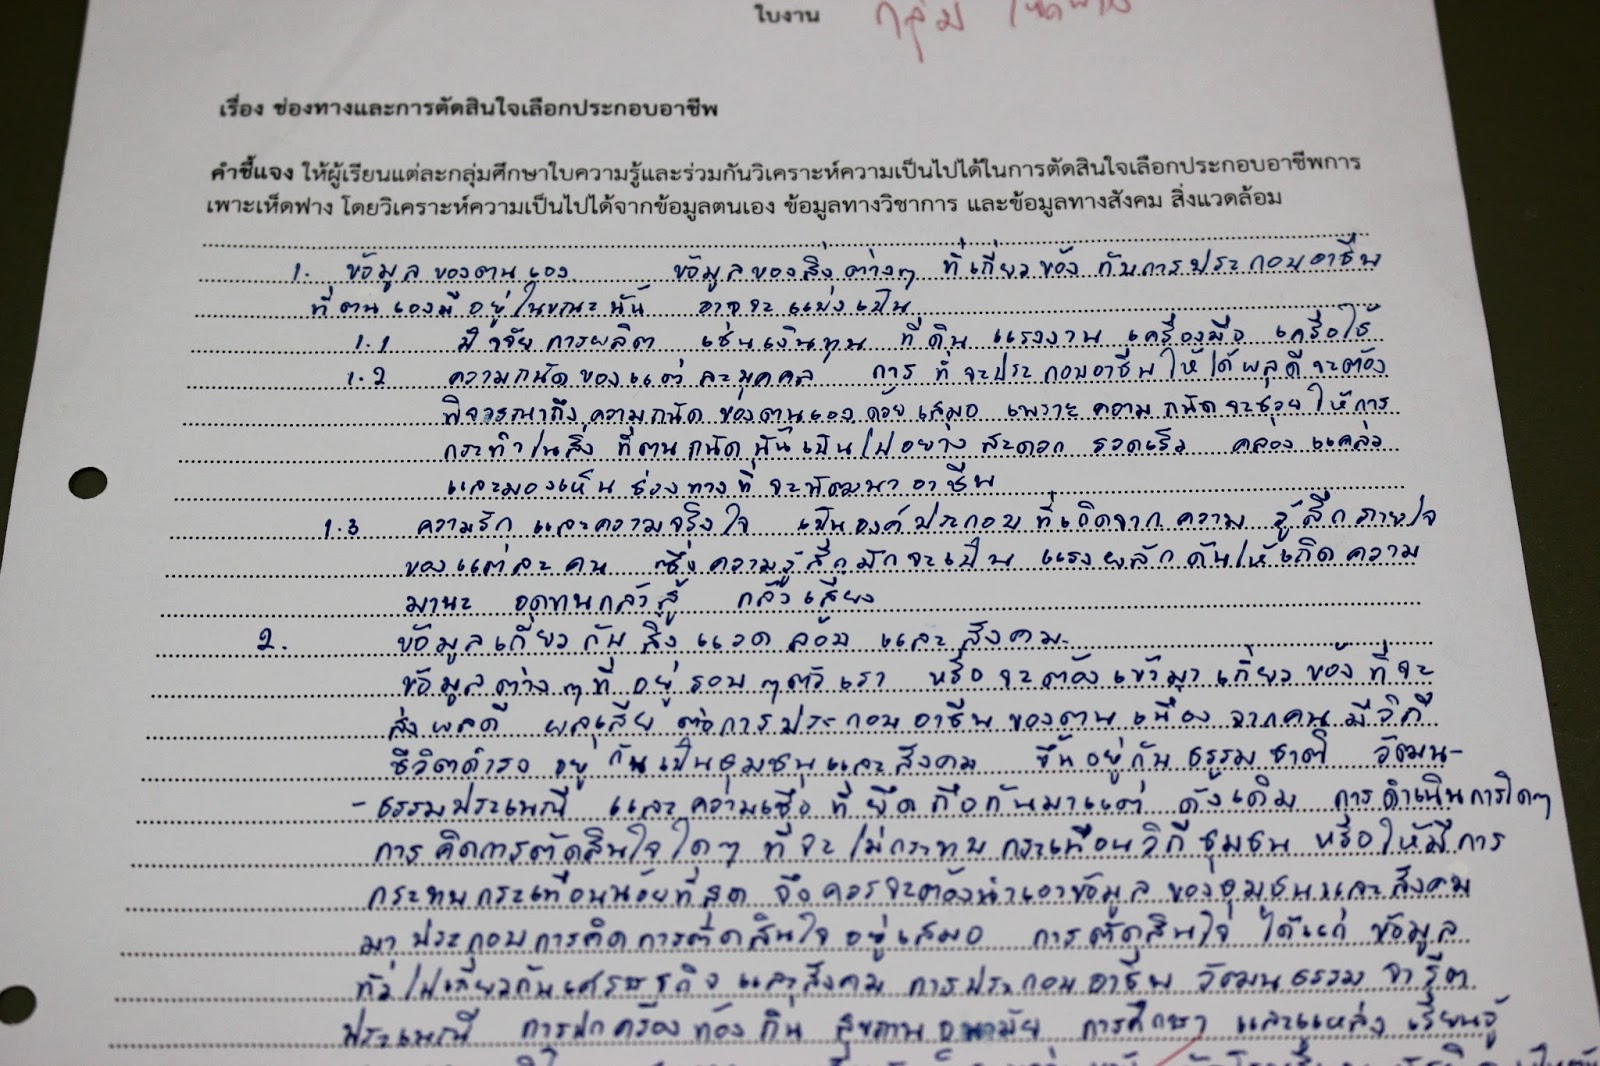 ใบงาน กลุ่ม
เรื่อง ช่องทางและการตัดสินใจเลือกประกอบอาชีพ
คำชี้แจง ให้ผู้เรียนแต่ละกลุ่มศึกษาใบความรู้และร่วมกันวิเคราะห์ความเป็นไปได้ในการตัดสินใจเลือกประกอบอาชีพการ
เพาะเห็ดฟาง โดยวิเคราะห์ความเป็นไปได้จากข้อมูลตนเอง ข้อมูลทางวิชาการ และข้อมูลทางสังคม สิ่งแวดล้อม
1. ข้อมูลของตนเอง ข้อมูลของสิ่งต่างๆ ที่เกี่ยวข้อง กับการประกอบอาชีพ
ที่ตนเองมีอยู่ในขณะนั้น อาจจะแบ่งเป็น
1.1 ปัจจัยการผลิต เช่นเงินทุน ที่ดิน แรงงาน เครื่องมือ เครื่อใช้
1.2 ความถนัดของแต่ละบุคคล การที่จะประกอบอาชีพให้ได้ผลดีจะต้อง
พิจารณาถึงความถนัดของตนเองด้วยเสมอ เพราะความถนัดจะช่วยให้การ
กระทำในสิ่งที่ตนถนัดนั้นเป็นไปอย่างสะดวก รวดเร็ว คล่องแคล่ว
และมองเห็นช่องทางที่จะพัฒนาอาชีพ
1.3 ความรักและความจริงใจ เป็นองค์ประกอบที่เกิดจากความรู้สึกภายใจ
ของแต่ละคน ซึ่งความรู้สึกมักจะเป็นแรงผลักดันให้เกิดความ
มานะ อดทนกล้าสู้ กล้าเสี่ยง
2. ข้อมูลเกี่ยวกับสิ่งแวดล้อม และสังคม
ข้อมูลต่างๆที่อยู่รอบๆตัวเรา หรือจะต้องเข้ามาเกี่ยวข้องที่จะ
ส่งผลดี ผลเสียต่อการประกอบอาชีพของตน เนื่องจากคนมีวิถี
ชีวิตดำรงอยู่กันเป็นชุมชนและสังคม ขึ้นอยู่กับธรรมชาติ วัฒน-
-ธรรมประเพณี และความเชื่อที่ยึดถือกันมาแต่ดั้งเดิม การดำเนินการใดๆ
การคิดการตัดสินใจใดๆ ที่จะไม่กระทบกระเทือนวิถีชุมชน หรือให้มีการ
กระทบกระเทือนน้อยที่สุด จึงควรจะต้องนำเอาข้อมูลของชุมชนและสังคม
มาประกอบการคิดการตัดสินใจอยู่เสมอ การตัดสินใจ ได้แก่ ข้อมูล
ทั่วไปเกี่ยวกับเศรษฐกิจและสังคม การประกอบอาชีพ วัฒนธรรม จารีต
ประเพณี การปกครองท้องถิ่น สุขภาพอนามัย การศึกษา และแหล่งเรียนรู้